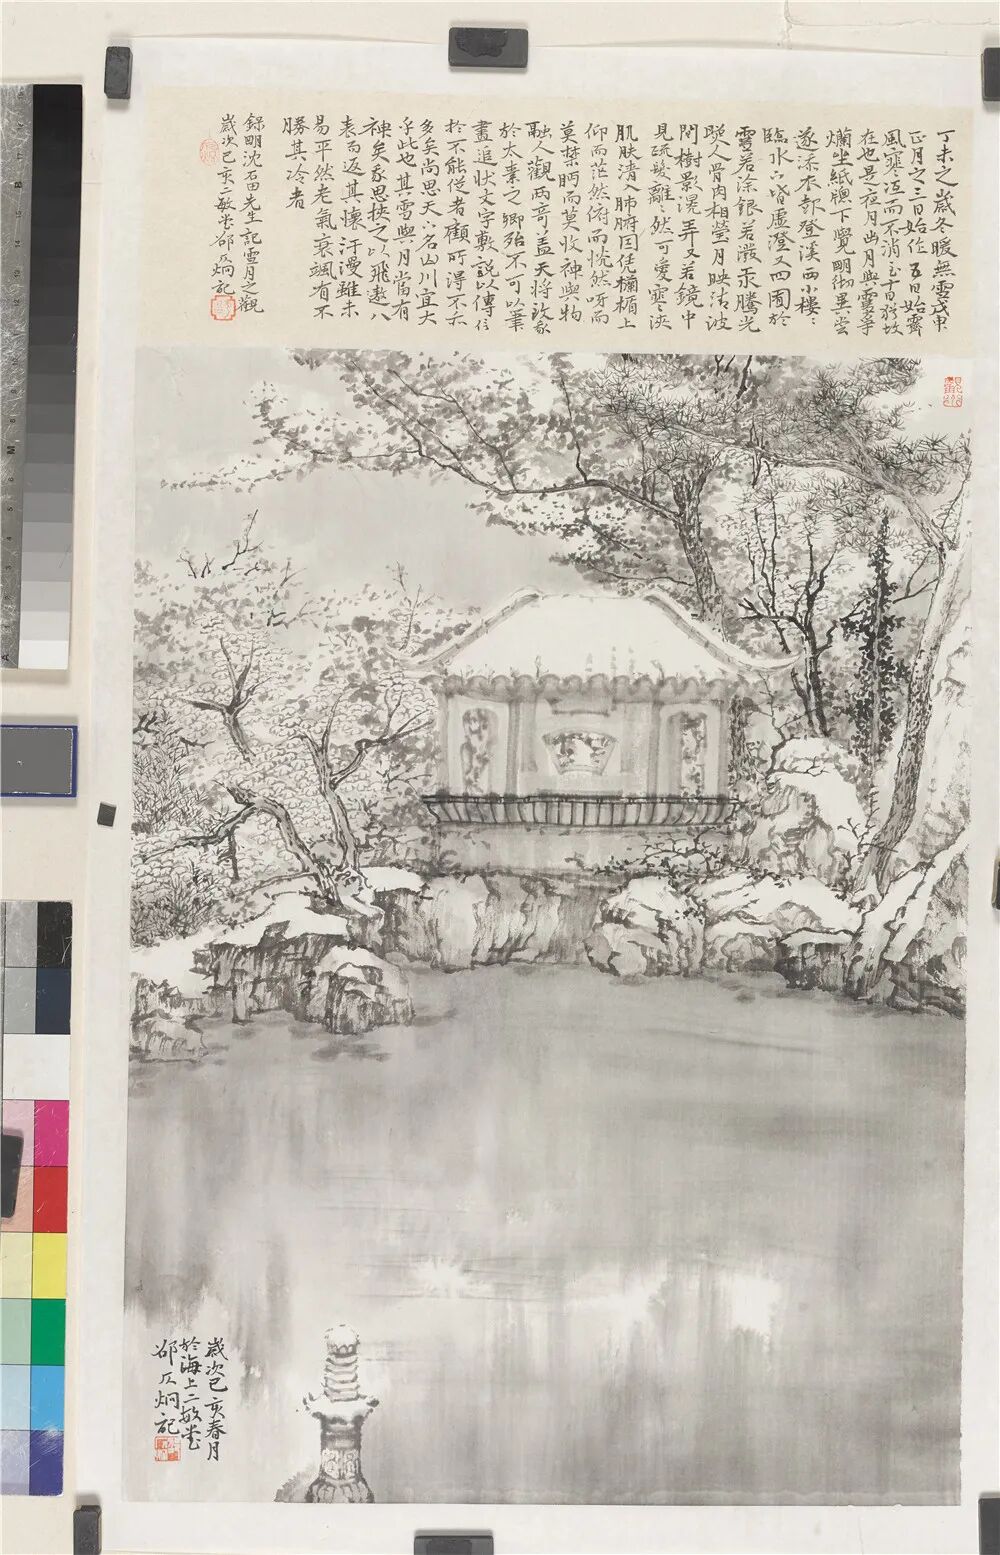 丁未之歲冬暖無雪戊申
正月之三日始作五日始霽
風寒冱而不消至十日猶故
在也是夜月出月與雪爭
爛坐紙牕下覺明徹異常
遂添衣起登溪西小樓〻
臨水下皆虛澄又四圍於
雪若涂銀若潑汞騰光
照人骨肉相瑩月映清波
間樹影滉弄又若鏡中
見疏髮離〻然可愛寒浹
肌膚清入肺腑因凭欄楯上
仰而茫然俯而恍然呀而
莫禁眄而莫收神與物
融人觀兩奇蓋天將致我
於太素之鄉殆不可以筆
畫追狀文字敷說以傳信
於不能從者顧所得不亦
多矣尚思天下名山川宜大
乎此也其雪與月當有
神矣我思挾之以飛遨八
表而返其懷汗漫雖未
易平然老氣衰颯有不
勝其冷者
錄明沈石田先生記雪月之觀
歲次己亥二敏堂邵仄炯記
歲次己亥春月
於海上二敏堂
邵仄炯記